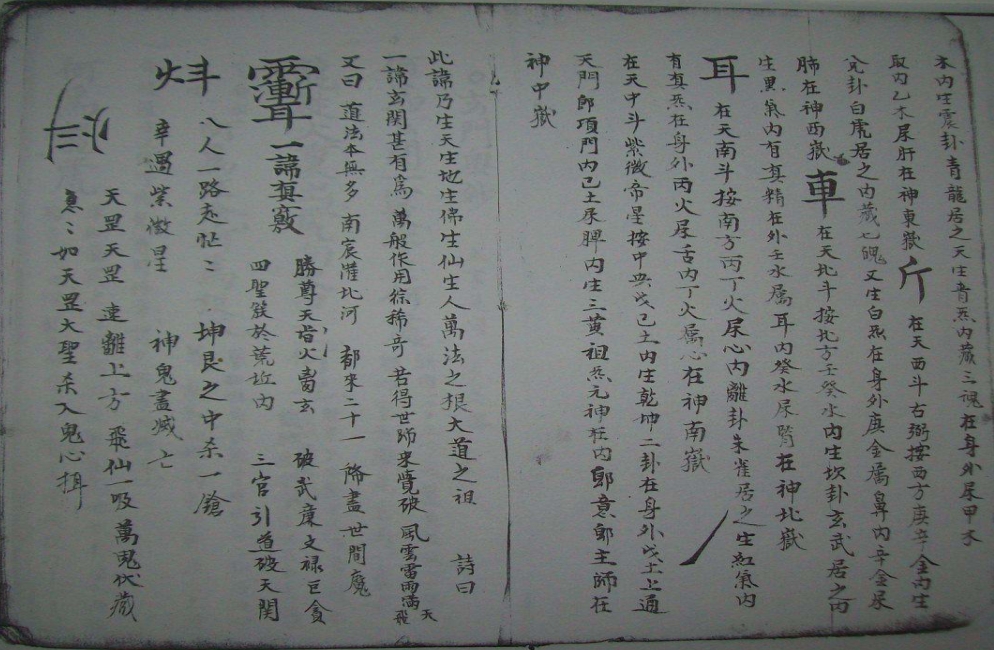 木內生震卦青龍居之天生青炁內藏三魂在身外尿甲木
取內乙木尿肝在神東嶽 斤 在天西斗右弼按西方庚辛金內生
兌卦白虎居之內藏七魄又生白炁在身外庚金屬鼻內辛金尿
肺在神西嶽 車 在天北斗按北方壬癸水內生坎卦玄武居之內
生黑氣內有真精在外壬水屬耳內癸水尿腎在神北嶽
耳 在天南斗按南方丙丁火尿心內離卦朱雀居之生紅氣內
有真炁在身外丙火尿舌內丁火屬心在神南嶽
在天中斗紫微帝星按中央戊己土內生乾坤二卦在身外戊土上通
天門即項門內己土尿脾內生三黃祖炁元神在內即意即主師在
神中嶽
此諱乃生天生地生佛生仙生人萬法之根大道之祖 詩曰
一諱玄関甚有為 萬般作用綜稀奇 若得世師來覽破 風雲雷雨滿天飛
又曰 道法本無多 南宸灌北河 都來二十一 降盡世間魔
一諱真竅 勝尊天皆火畐玄 破武廉文祿巨貪
四聖簇於荒近內 三官引道破天関
八人一路走忙〻 坤艮之中杀一鎗
幸過紫微星 神鬼盡滅亡
天罡天罡 速離上方 飛仙一吸 萬鬼伏藏
急〻如天罡大聖杀入鬼心